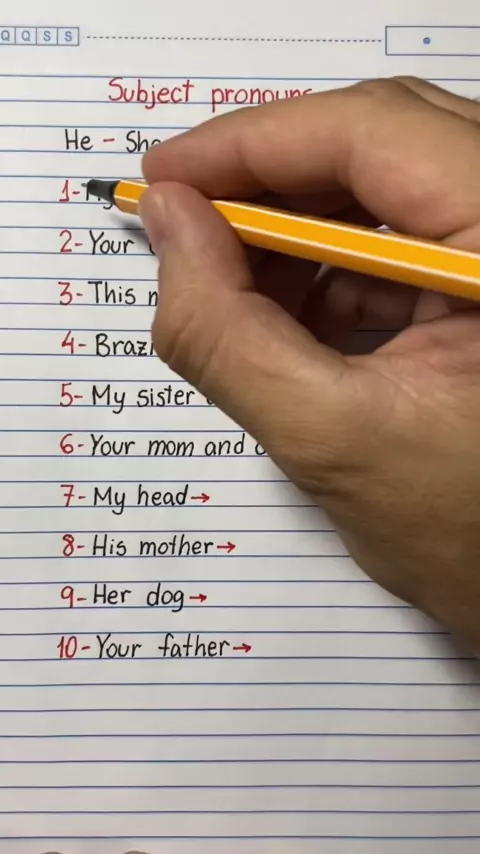 Q Q S S
Subject pronouns
He - She
1-
2- Your
3- This
4- Brazil
5- My sister
6- Your mom and
7- My head→
8- His mother→
9- Her dog→
10- Your father→